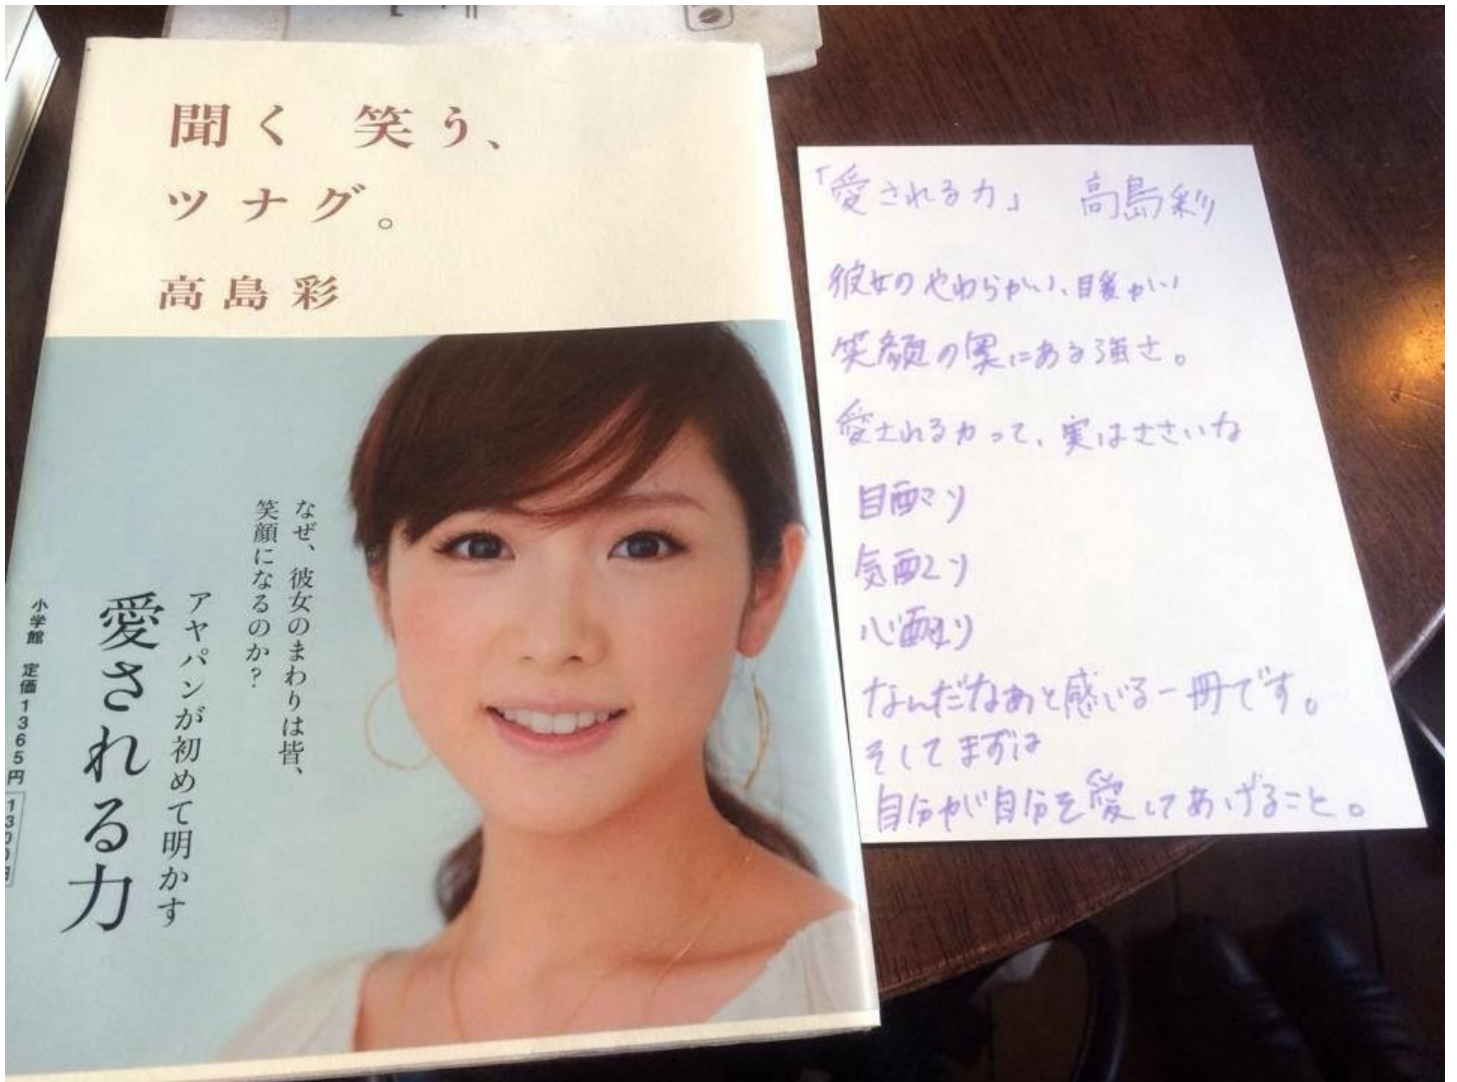 聞く 笑う、
ツナグ。
高島彩
なぜ、彼女のまわりは皆、
笑顔になるのか?
アヤパンが初めて明かす
愛される力
小学館 定価1365円
「愛される力」 高島彩
彼女のやわらかい、暖かい
笑顔の奥にある強さ。
愛される力って、実はささいな
目配り
気配り
心配り
なんだなあと感じる一冊です。
そしてまずは
自分が自分を愛してあげること。